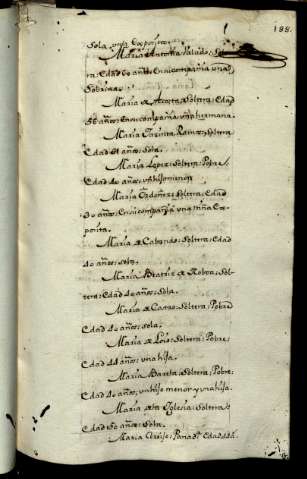 188.
Sola, una Exposita.
Maria Antonia Salido, Solte-
ra: Edad 60 años: en su compañia una
Sobrina.
Maria de Acosta, Soltera: Edad
50 años: en su compañia una hermana.
Maria Jacinta Ramos, Soltera
Edad años: Sola.
Maria Lopez: Soltera: Pobre:
Edad 40 años: un hijo menor
Maria Ordoñez: Soltera: Edad
30 años: En su compañia una niña Ex-
posita.
Maria de Soltera: Edad
40 años: sola.
Maria Beatriz de Robra: Sol-
tera: Edad 40 años: Sola.
Maria de Castro: Soltera: Pobre
Edad 40 años: sola.
Maria de Lois: Soltera: Pobre:
Edad 44 años: una hija.
Maria Soltera: Pobre:
Edad 40 años: un hijo menor y una hija.
Maria de la Iglesia: Soltera:
Edad 50 años: Sola.
Maria Panad.ª Edad